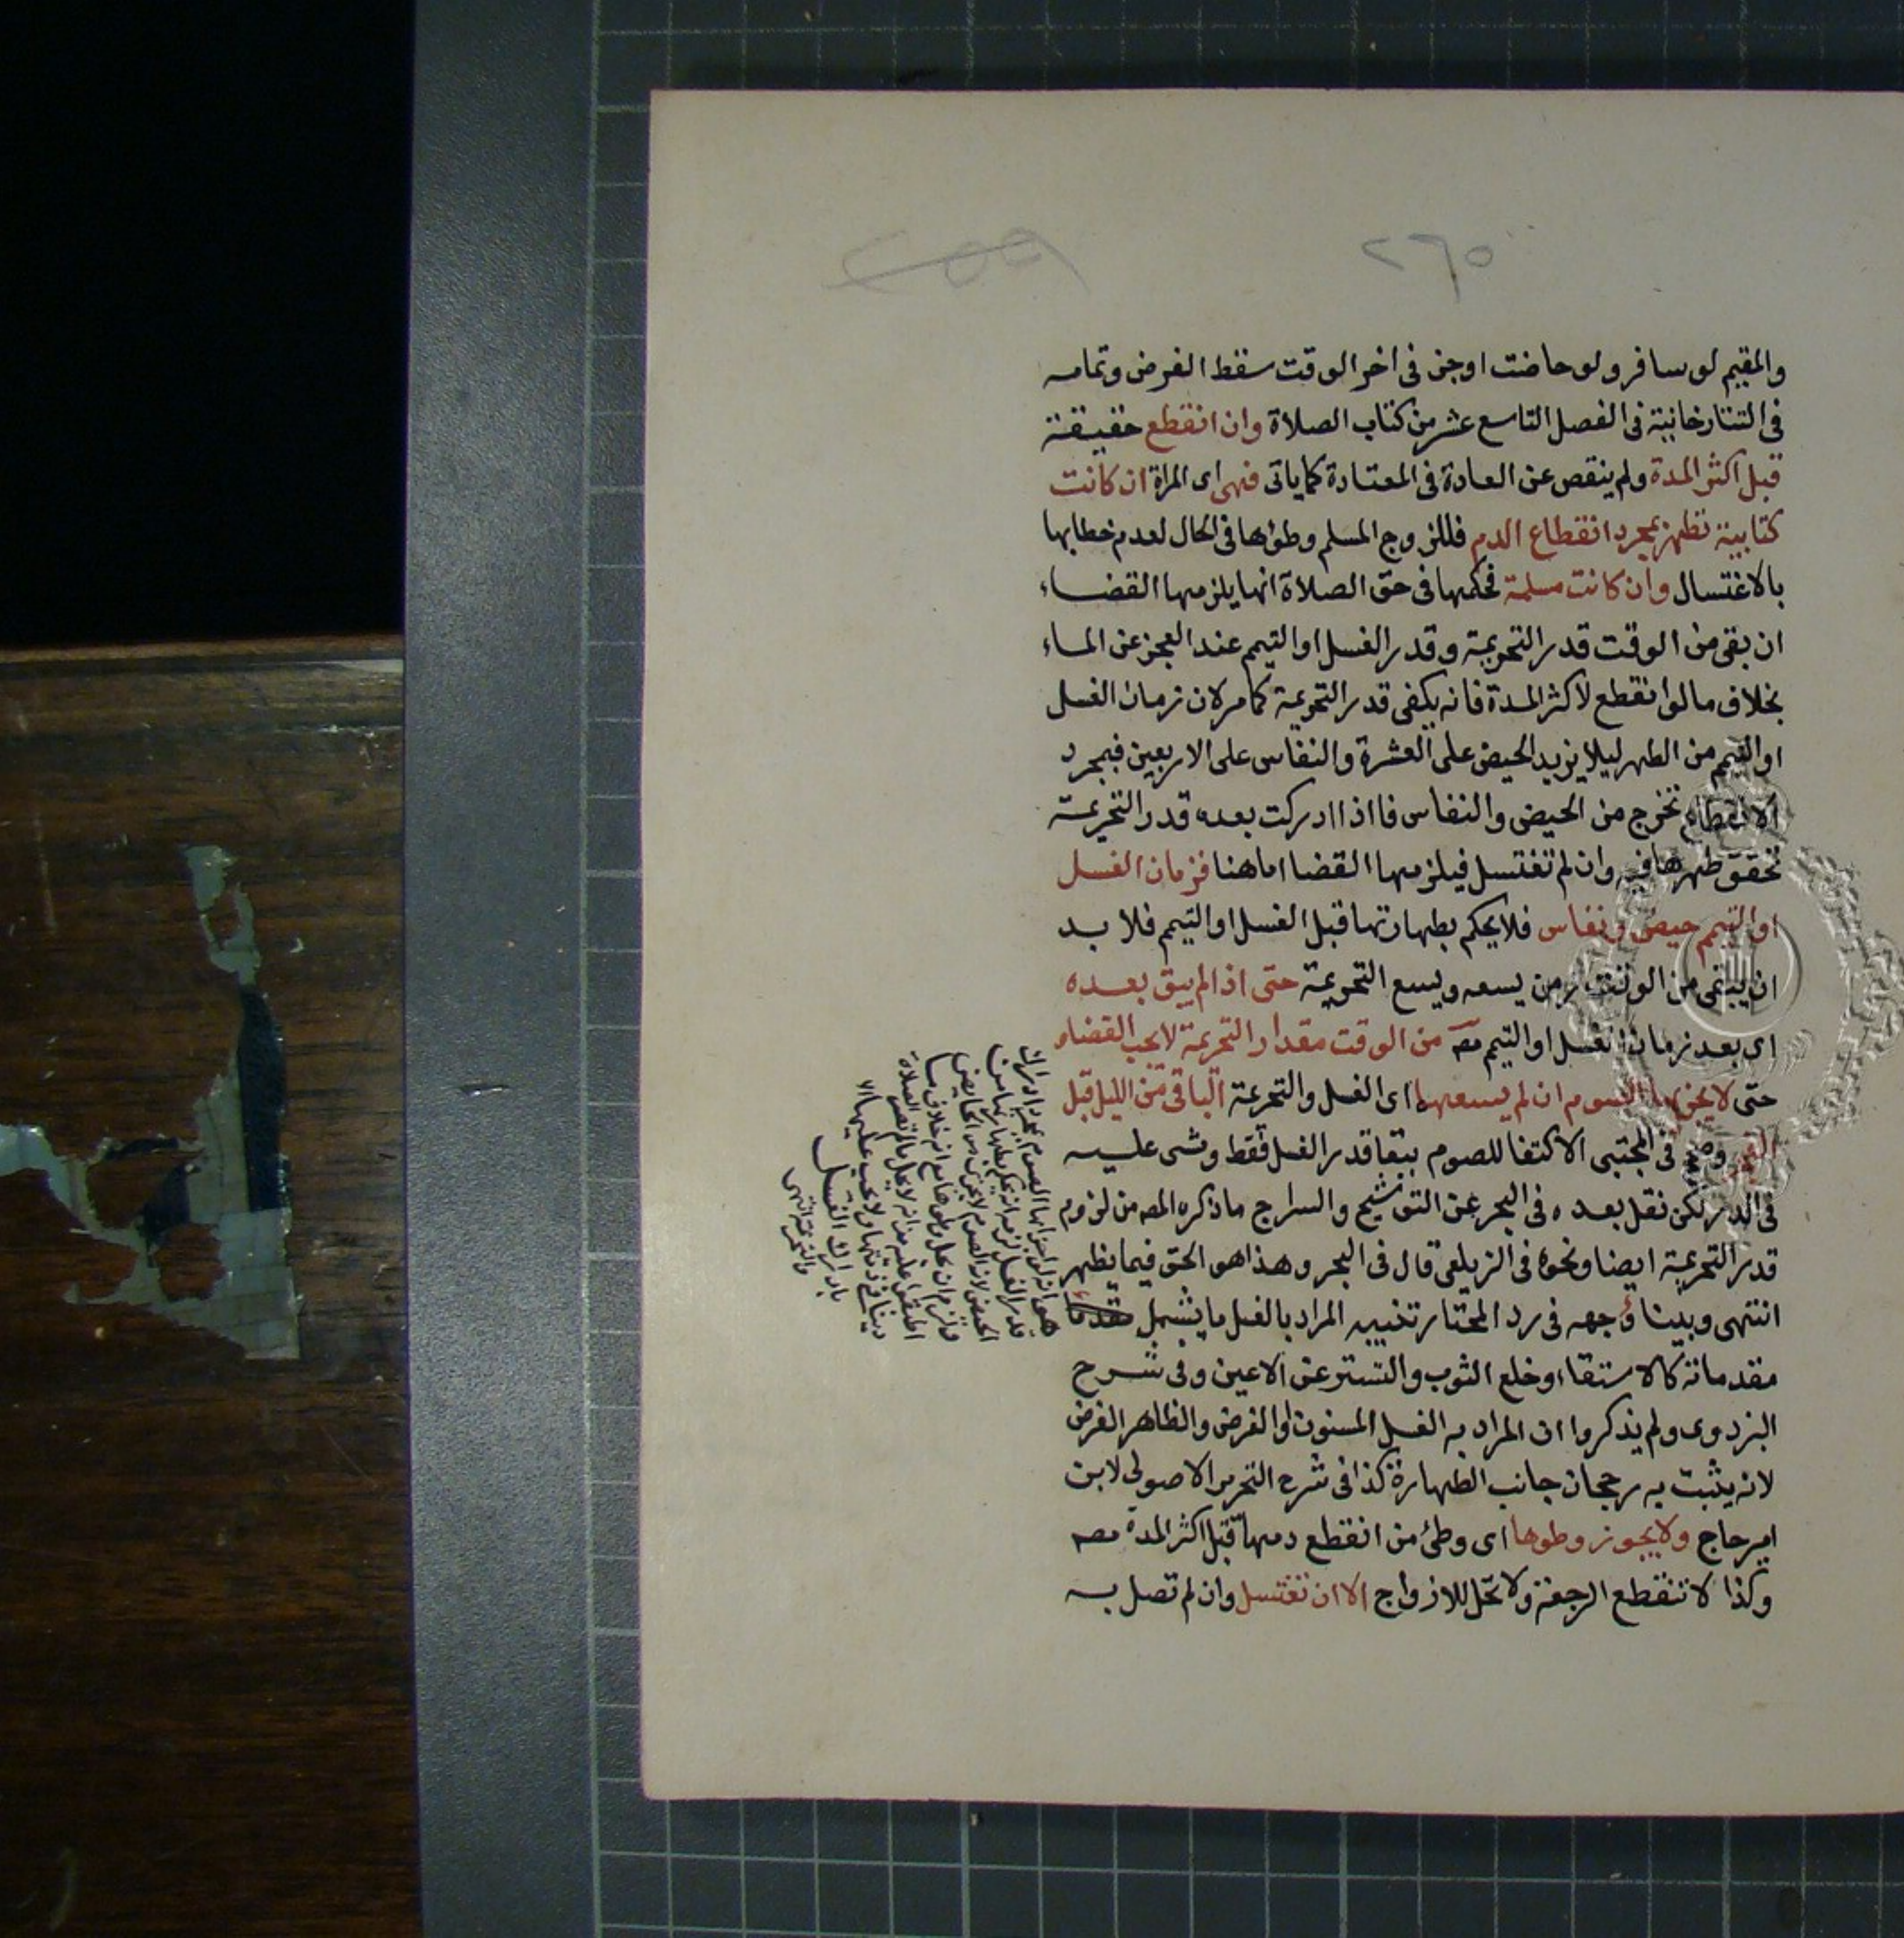 ٢٦٥
٢٥٥
والمقيم لو سافر ولو حاضت او جن في اخر الوقت سقط الفرض وتمامه
في التتارخانية في الفصل التاسع عشر من كتاب الصلاة وان انقطع حقيقة
قبل اكثر المدة ولم ينقص عن العادة في المعتادة كما ياتي فهي اى المراة ان كانت
كتابية تطهر بمجرد انقطاع الدم فللزوج المسلم وطؤها في الحال لعدم خطابها
بالاغتسال وان كانت مسلمة فحكمها في حق الصلاة انها يلزمها القضاء
ان بقي من الوقت قدر التحريمة وقدر الغسل او التيمم عند العجز عن الماء
بخلاف ما لو انقطع لاكثر المدة فانه يكفي قدر التحريمة كما مر لان زمان الغسل
او التيمم من الطهر ليلا يزيد الحيض على العشرة والنفاس على الاربعين فبمجرد
الانقطاع تخرج من الحيض والنفاس فااذا ادركت بعده قدر التحريمة
تحقق طهرها فيه وان لم تغتسل فيلزمها القضا اما هنا فزمان الغسل
او التيمم حيض ونفاس فلا يحكم بطهارتها قبل الغسل او التيمم فلا بد
ان يبقى من الوقت زمن يسعه ويسع التحريمة حتى اذا لم يبق بعده
اى بعد زمان الغسل او التيمم مصـ من الوقت مقدار التحريمة لا يجب القضاء
حتى لا يجزيها الصوم ان لم يسعهما اى الغسل والتحريمة الباقي من الليل قبل
الفجر وصحح في المجتبى الاكتفا للصوم ببقا قدر الغسل فقط ومشى عليه
في الدر لكن نقل بعده في البحر عن التوشيح والسراج ما ذكره المصـ من لزوم
قدر التحريمة ايضا ونحوه في الزيلعي قال في البحر وهذا هو الحق فيما يظهر
انتهى وبينا وجهه في رد المحتار تنبيه المراد بالغسل ما يشمل
مقدماته كالاستقاء وخلع الثوب والتستر عن الاعين وفي شرح
البزدوى ولم يذكروا ان المراد به الغسل المسنون او الفرض والظاهر الفرض
لانه يثبت به رجحان جانب الطهارة كذا في شرح التحرير الاصولى لابن
امير حاج ولا يجوز وطوها اى وطئ من انقطع دمها قبل اكثر المدة مصـ
وكذا لا تنقطع الرجعة ولا تحل للازواج الا ان تغتسل وان لم تصل به